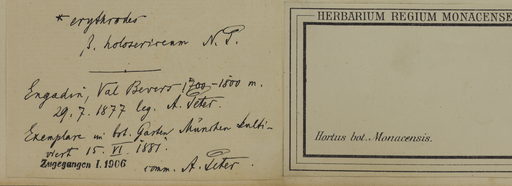 * erythrodes
β. holosericeum N. P.
Engadin, Val Bevers 1700-1800 m.
29. 7. 1877 leg. A. Peter.
Exemplare im bot. Garten München kulti-
viert 15. VI. 1881.
Zugegangen I. 1906
comm. A. Peter.
HERBARIUM REGIUM MONACENSE
Hortus bot. Monacensis.